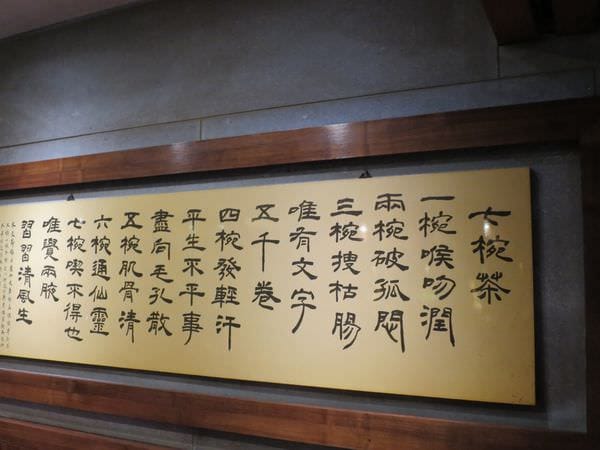 七椀茶
一椀喉吻潤
兩椀破孤悶
三椀搜枯腸
唯有文字
五千卷
四椀發輕汗
平生不平事
盡向毛孔散
五椀肌骨清
六椀通仙靈
七椀喫不得也
唯覺兩腋
習習清風生